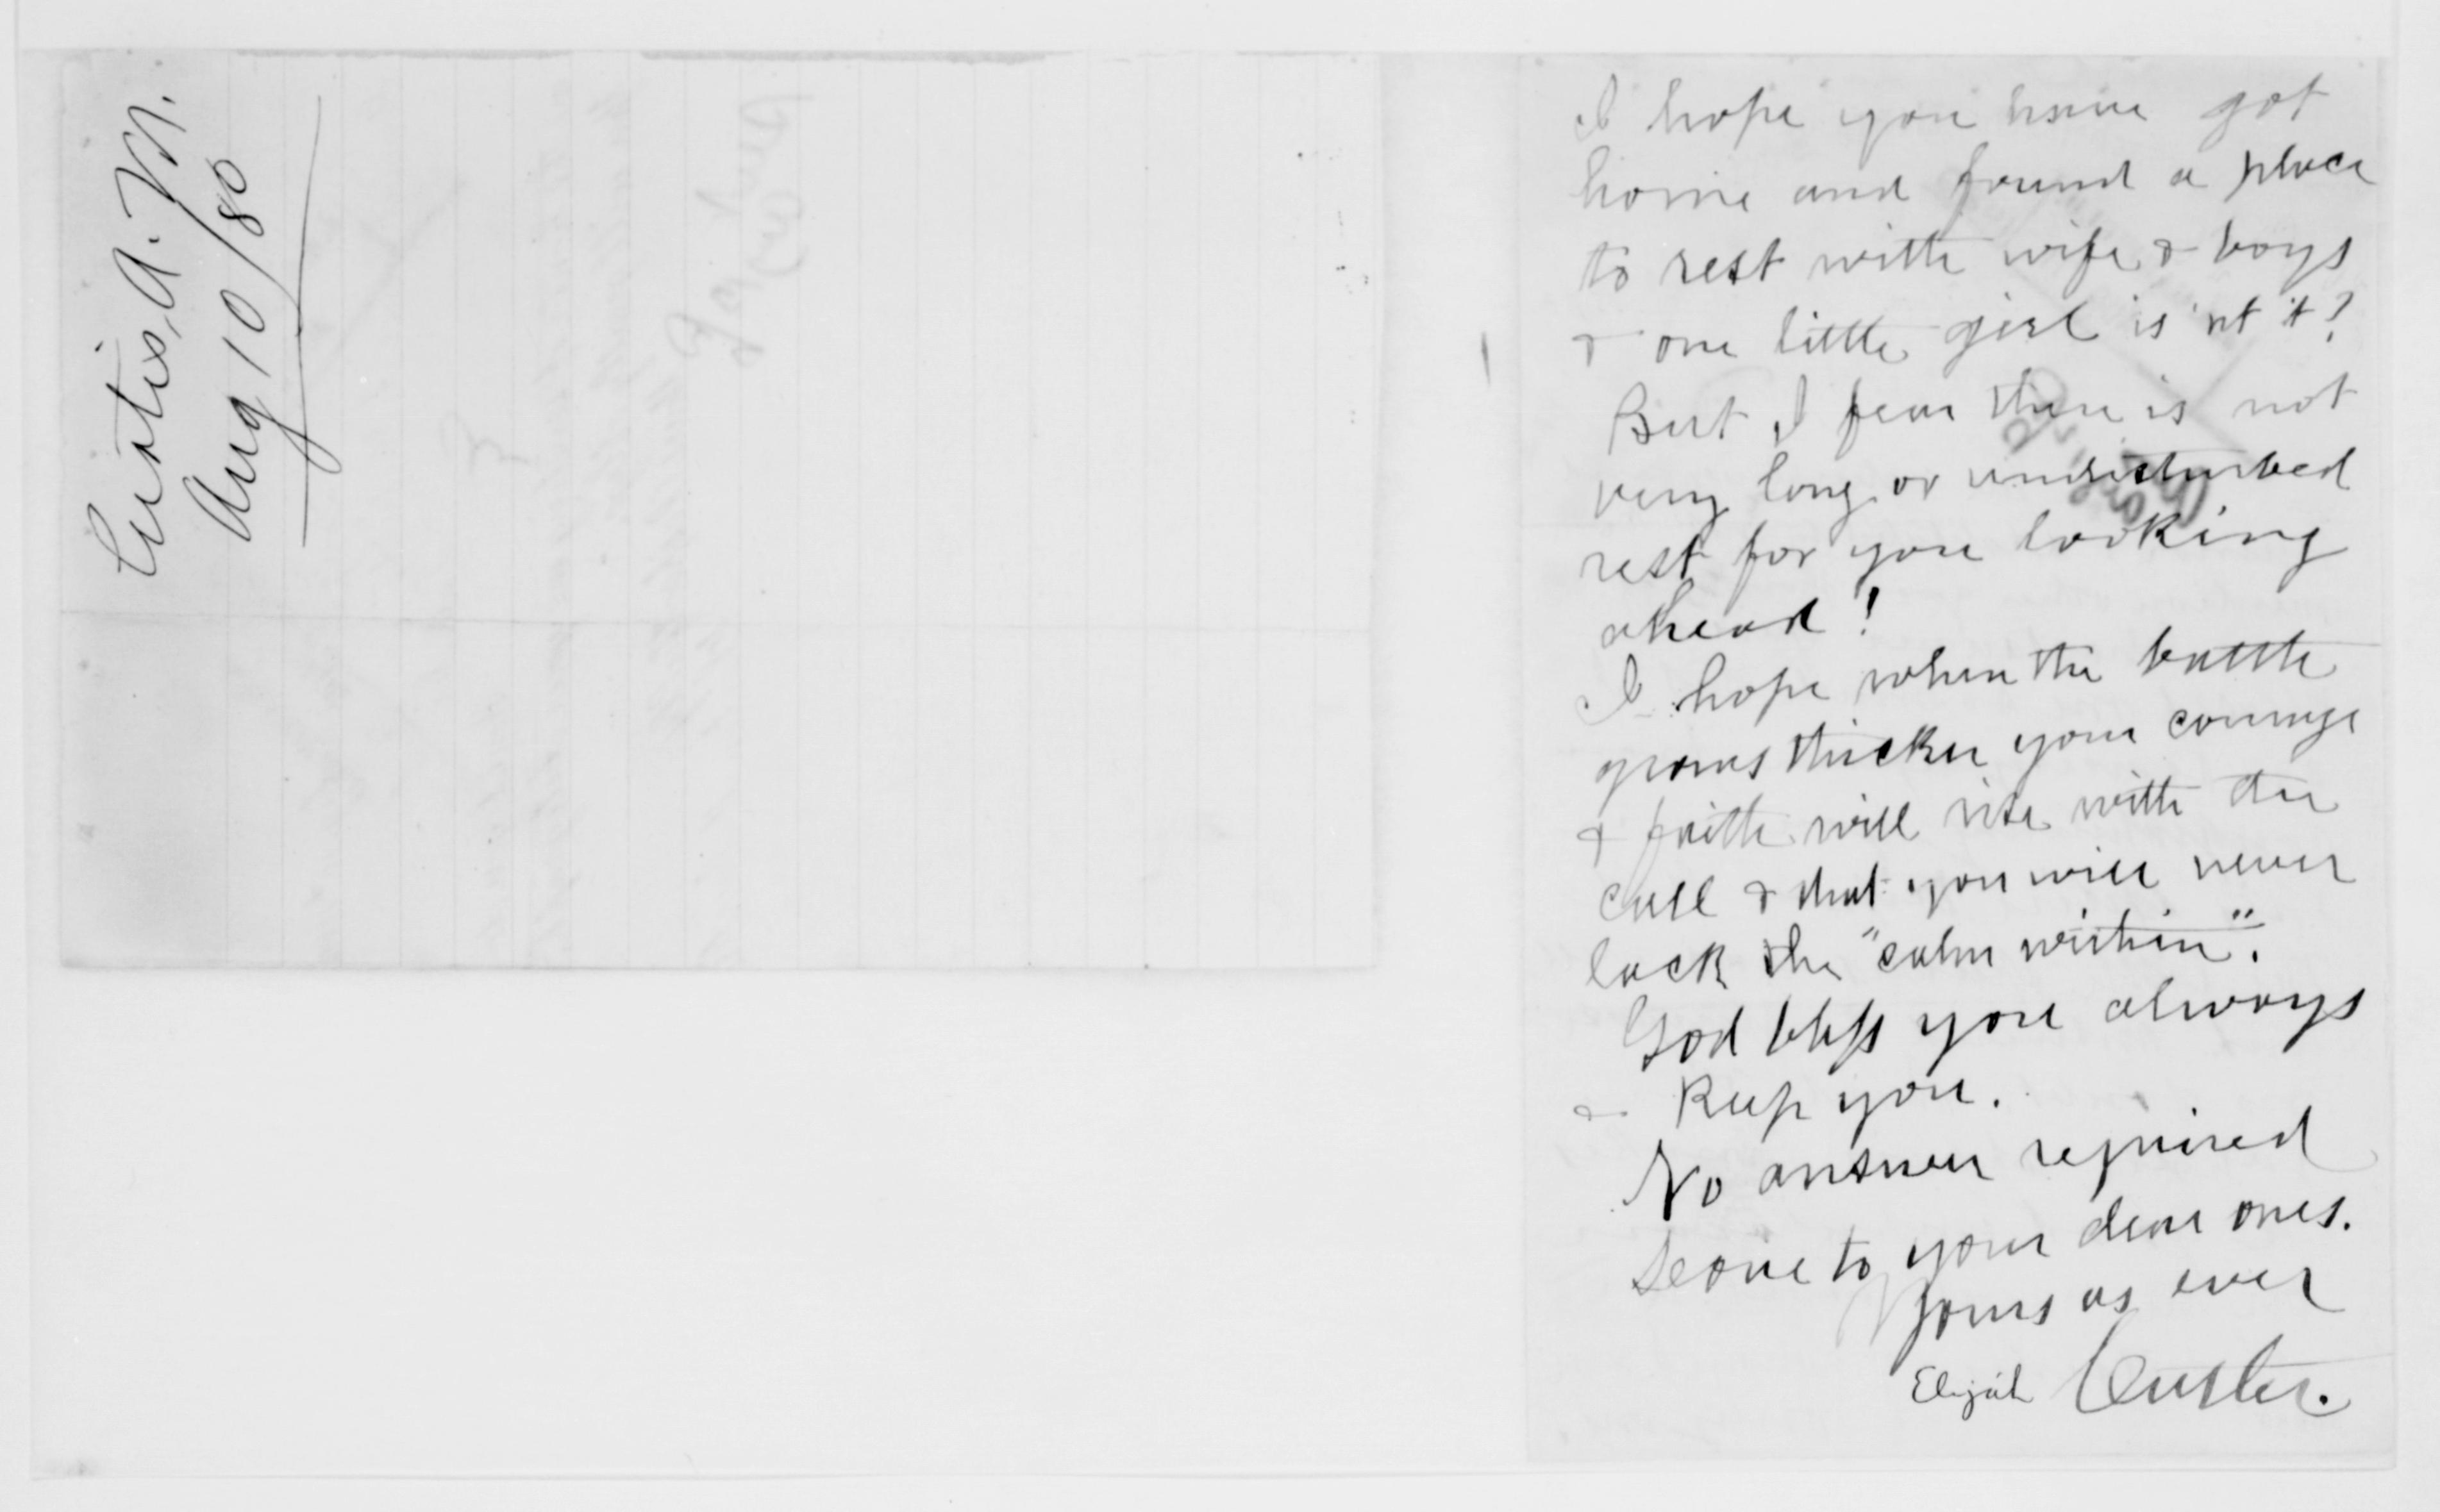 Curtis, A. M.
Aug 10/80
I hope you have got
home and found a place
to rest with wife & boys
& one little girl is 'nt it?
But I fear there is not
very long or undisturbed
rest for you looking
ahead!
I hope when the battle
grows thicker your courage
& faith will rise with the
call & that you will never
lack the "calm within".
God bless you always
& keep you.
No answer required
Love to your dear ones.
Yours as ever
Elijah Custer.